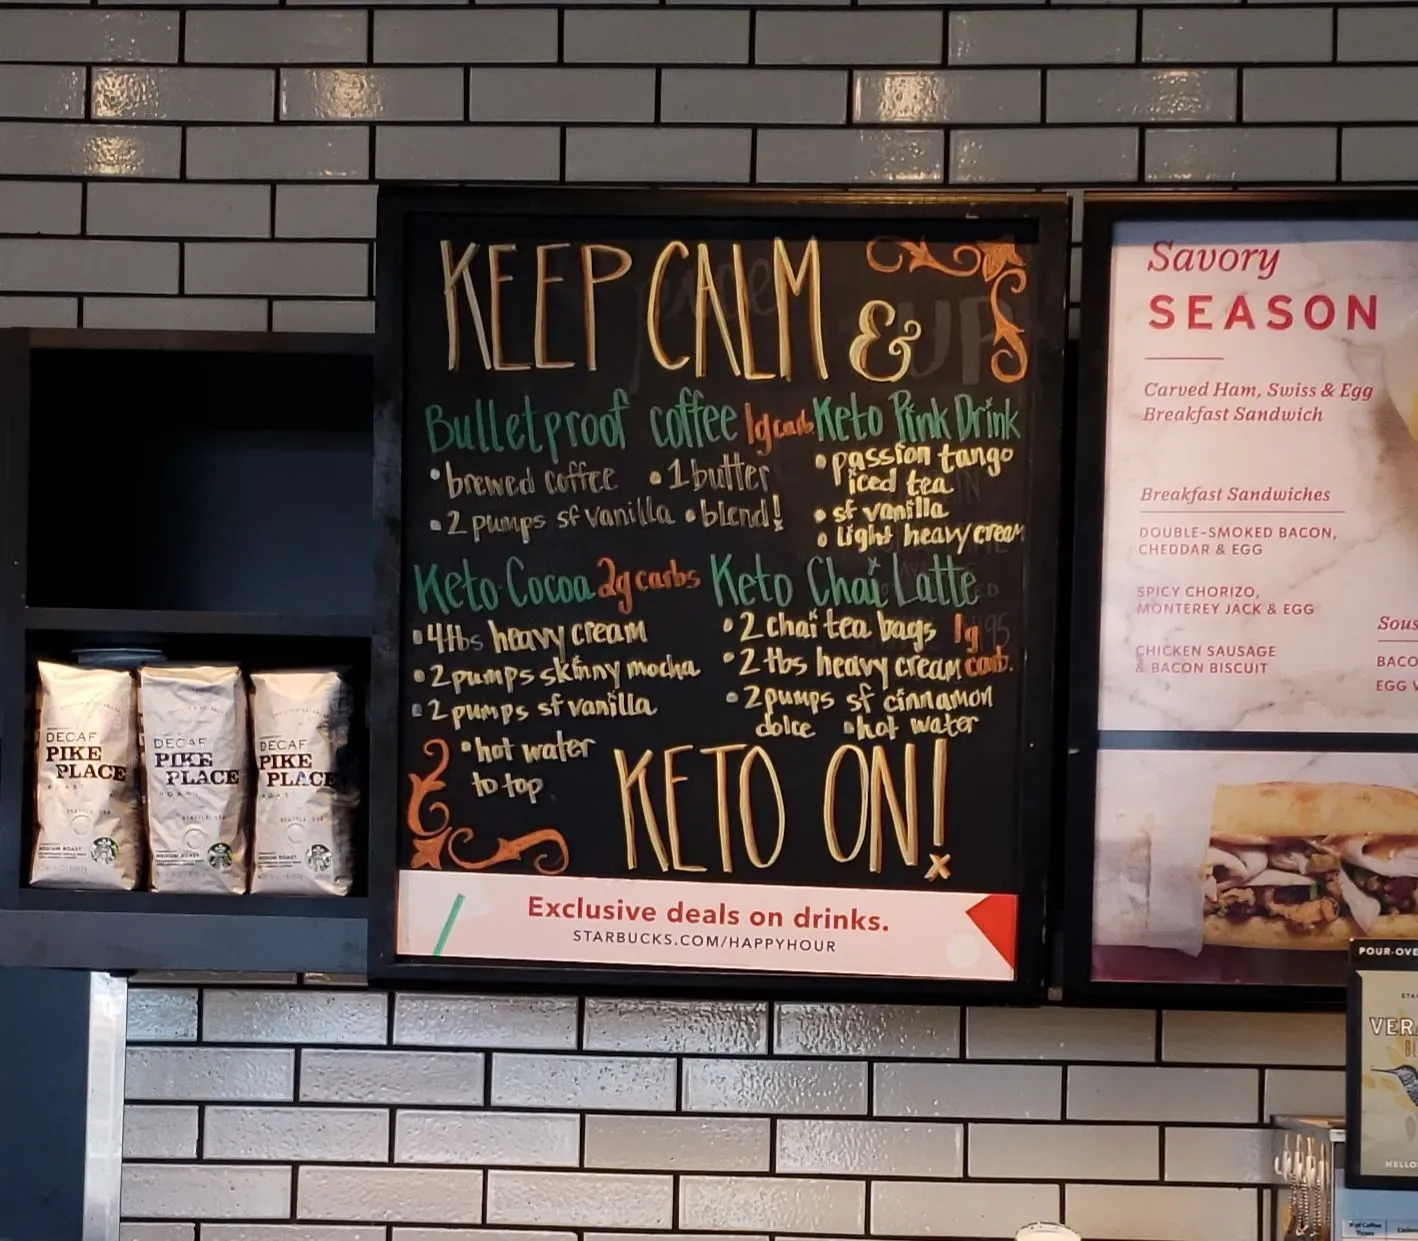 KEEP CALM
&
Bulletproof coffee 1g carb
• brewed coffee • 1 butter
• 2 pumps sf vanilla • blend!
Keto Pink Drink
• passion tango
iced tea
• sf vanilla
• light heavy cream
Keto Cocoa 2g carbs
• 4 tbs heavy cream
• 2 pumps skinny mocha
• 2 pumps sf vanilla
• hot water
to top
Keto Chai Latte
• 2 chai tea bags 1g
• 2 tbs heavy cream carb.
• 2 pumps sf cinnamon
dolce • hot water
KETO ON!
Exclusive deals on drinks.
STARBUCKS.COM/HAPPYHOUR
Savory
SEASON
Carved Ham, Swiss & Egg
Breakfast Sandwich
Breakfast Sandwiches
DOUBLE-SMOKED BACON,
CHEDDAR & EGG
SPICY CHORIZO,
MONTEREY JACK & EGG
CHICKEN SAUSAGE
& BACON BISCUIT
Sous
BACO
EGG
DECAF
PIKE
PLACE
ROAST
MEDIUM ROAST
DECAF
PIKE
PLACE
SEATTLE, USA
MEDIUM ROAST
DECAF
PIKE
PLACE
SEATTLE
MEDIUM ROAST
POUR-OVE
STA
VERA
BL
MELLO
# of Coffee
Types